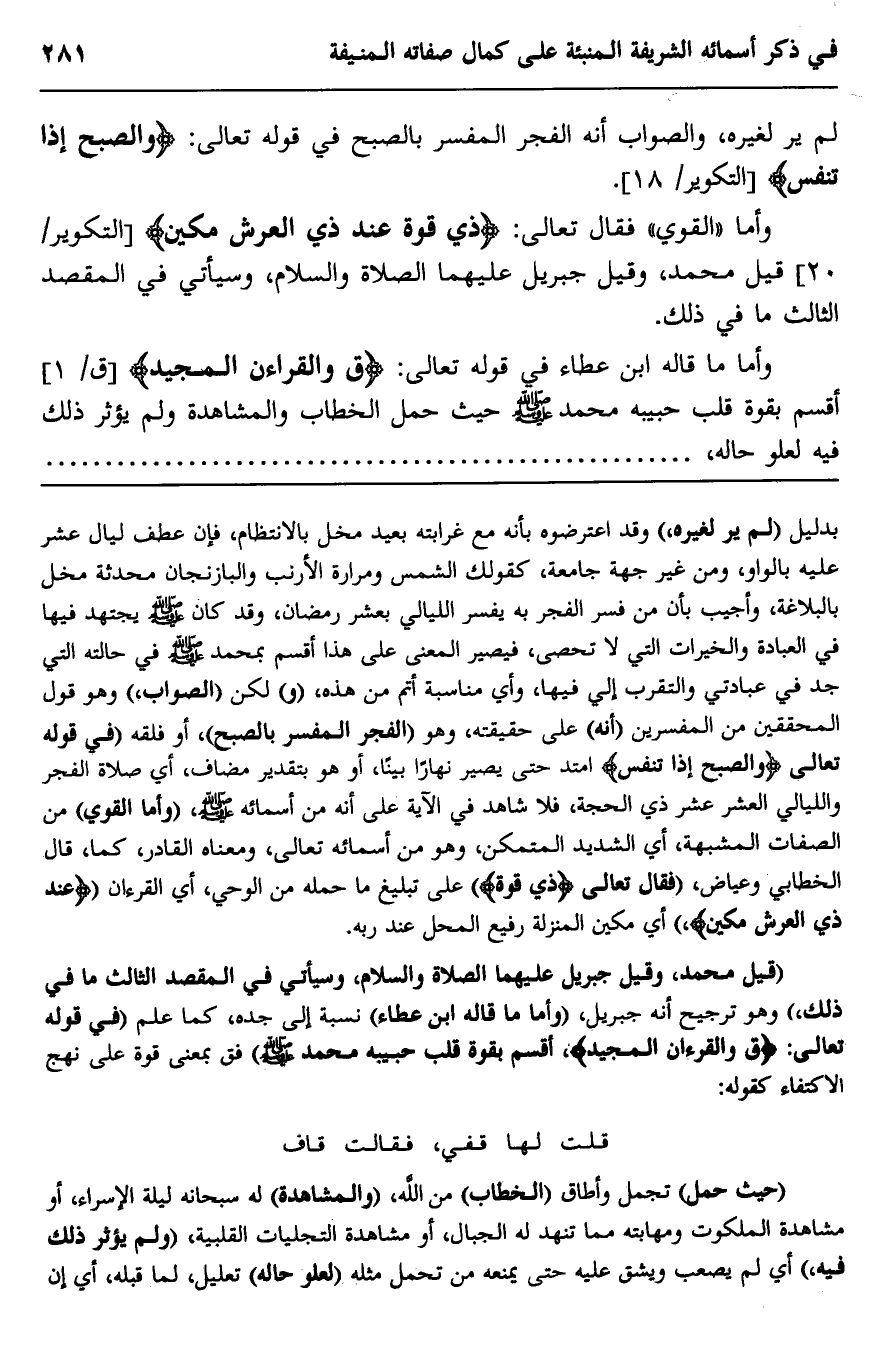 في ذكر أسمائه الشريفة المنبئة على كمال صفاته المنيفة ٢٨١
لم ير لغيره، والصواب أنه الفجر المفسر بالصبح في قوله تعالى: ﴿والصبح إذا
تنفس﴾ [التكوير/ ١٨].
وأما «القوي» فقال تعالى: ﴿ذي قوة عند ذي العرش مكين﴾ [التكوير/
٢٠] قيل محمد، وقيل جبريل عليهما الصلاة والسلام، وسيأتي في المقصد
الثالث ما في ذلك.
وأما ما قاله ابن عطاء في قوله تعالى: ﴿ق والقراءن المجيد﴾ [ق/ ١]
أقسم بقوة قلب حبيبه محمد ﷺ حيث حمل الخطاب والمشاهدة ولم يؤثر ذلك
فيه لعلو حاله، ......................................................
بدليل (لم ير لغيره،) وقد اعترضوه بأنه مع غرابته بعيد مخل بالانتظام، فإن عطف ليال عشر
عليه بالواو، ومن غير جهة جامعة، كقولك الشمس ومرارة الأرنب والبازنجان محدثة مخل
بالبلاغة، وأجيب بأن من فسر الفجر به يفسر الليالي بعشر رمضان، وقد كان ﷺ يجتهد فيها
في العبادة والخيرات التي لا تحصى، فيصير المعنى على هذا أقسم بمحمد ﷺ في حالته التي
جد في عبادتي والتقرب إلي فيها، وأي مناسبة أتم من هذه، (و) لكن (الصواب،) وهو قول
المحققين من المفسرين (أنه) على حقيقته، وهو (الفجر المفسر بالصبح)، أو فلقه (في قوله
تعالى ﴿والصبح إذا تنفس﴾ امتد حتى يصير نهارًا بينًا، أو هو بتقدير مضاف، أي صلاة الفجر
والليالي العشر عشر ذي الحجة، فلا شاهد في الآية على أنه من أسمائه ﷺ، (وأما القوي) من
الصفات المشبهة، أي الشديد المتمكن، وهو من أسمائه تعالى، ومعناه القادر، كما، قال
الخطابي وعياض، (فقال تعالى ﴿ذي قوة﴾) على تبليغ ما حمله من الوحي، أي القرءان (﴿عند
ذي العرش مكين﴾،) أي مكين المنزلة رفيع المحل عند ربه.
(قيل محمد، وقيل جبريل عليهما الصلاة والسلام، وسيأتي في المقصد الثالث ما في
ذلك،) وهو ترجيح أنه جبريل، (وأما ما قاله ابن عطاء) نسبة إلى جده، كما علم (في قوله
تعالى: ﴿ق والقرءان المجيد﴾، أقسم بقوة قلب حبيبه محمد ﷺ) فق بمعنى قوة على نهج
الاكتفاء كقوله:
قلت لها قفي، فقالت قاف
(حيث حمل) تجمل وأطاق (الخطاب) من اللَّه، (والمشاهدة) له سبحانه ليلة الإسراء، أو
مشاهدة الملكوت ومهابته مما تنهد له الجبال، أو مشاهدة التجليات القلبية، (ولم يؤثر ذلك
فيه،) أي لم يصعب ويشق عليه حتى يمنعه من تحمل مثله (لعلو حاله) تعليل، لما قبله، أي إن